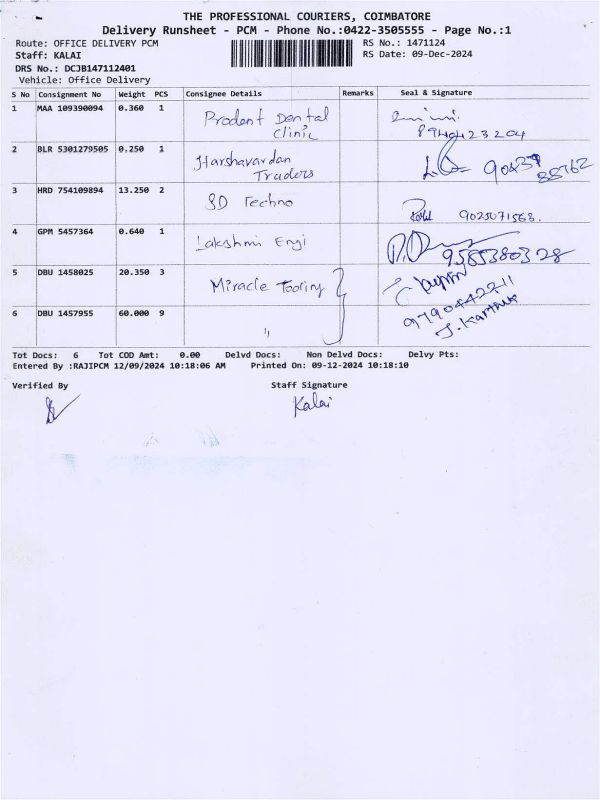 THE PROFESSIONAL COURIERS, COIMBATORE
Delivery Runsheet - PCM - Phone No.:0422-3505555 - Page No.:1
Route: OFFICE DELIVERY PCM
RS No.: 1471124
Staff: KALAI
RS Date: 09-Dec-2024
DRS No.: DCJB147112401
Vehicle: Office Delivery
S No Consignment No Weight PCS Consignee Details Remarks Seal & Signature
1 MAA 109390094 0.360 1 Prodent Dental
Clinic
2 BLR 5301279505 0.250 1 Harshavardan
Traders
3 HRD 754109894 13.250 2 SD Techno
9025071563.
4 GPM 5457364 0.640 1 Lakshmi Engi
9585380328
5 DBU 1458025 20.350 3 Miracle Tooling
9790442211
J. Karthik
6 DBU 1457955 60.000 9 "
Tot Docs: 6 Tot COD Amt: 0.00 Delvd Docs: Non Delvd Docs: Delvy Pts:
Entered By :RAJIPCM 12/09/2024 10:18:06 AM Printed On: 09-12-2024 10:18:10
Verified By Staff Signature
Kalai